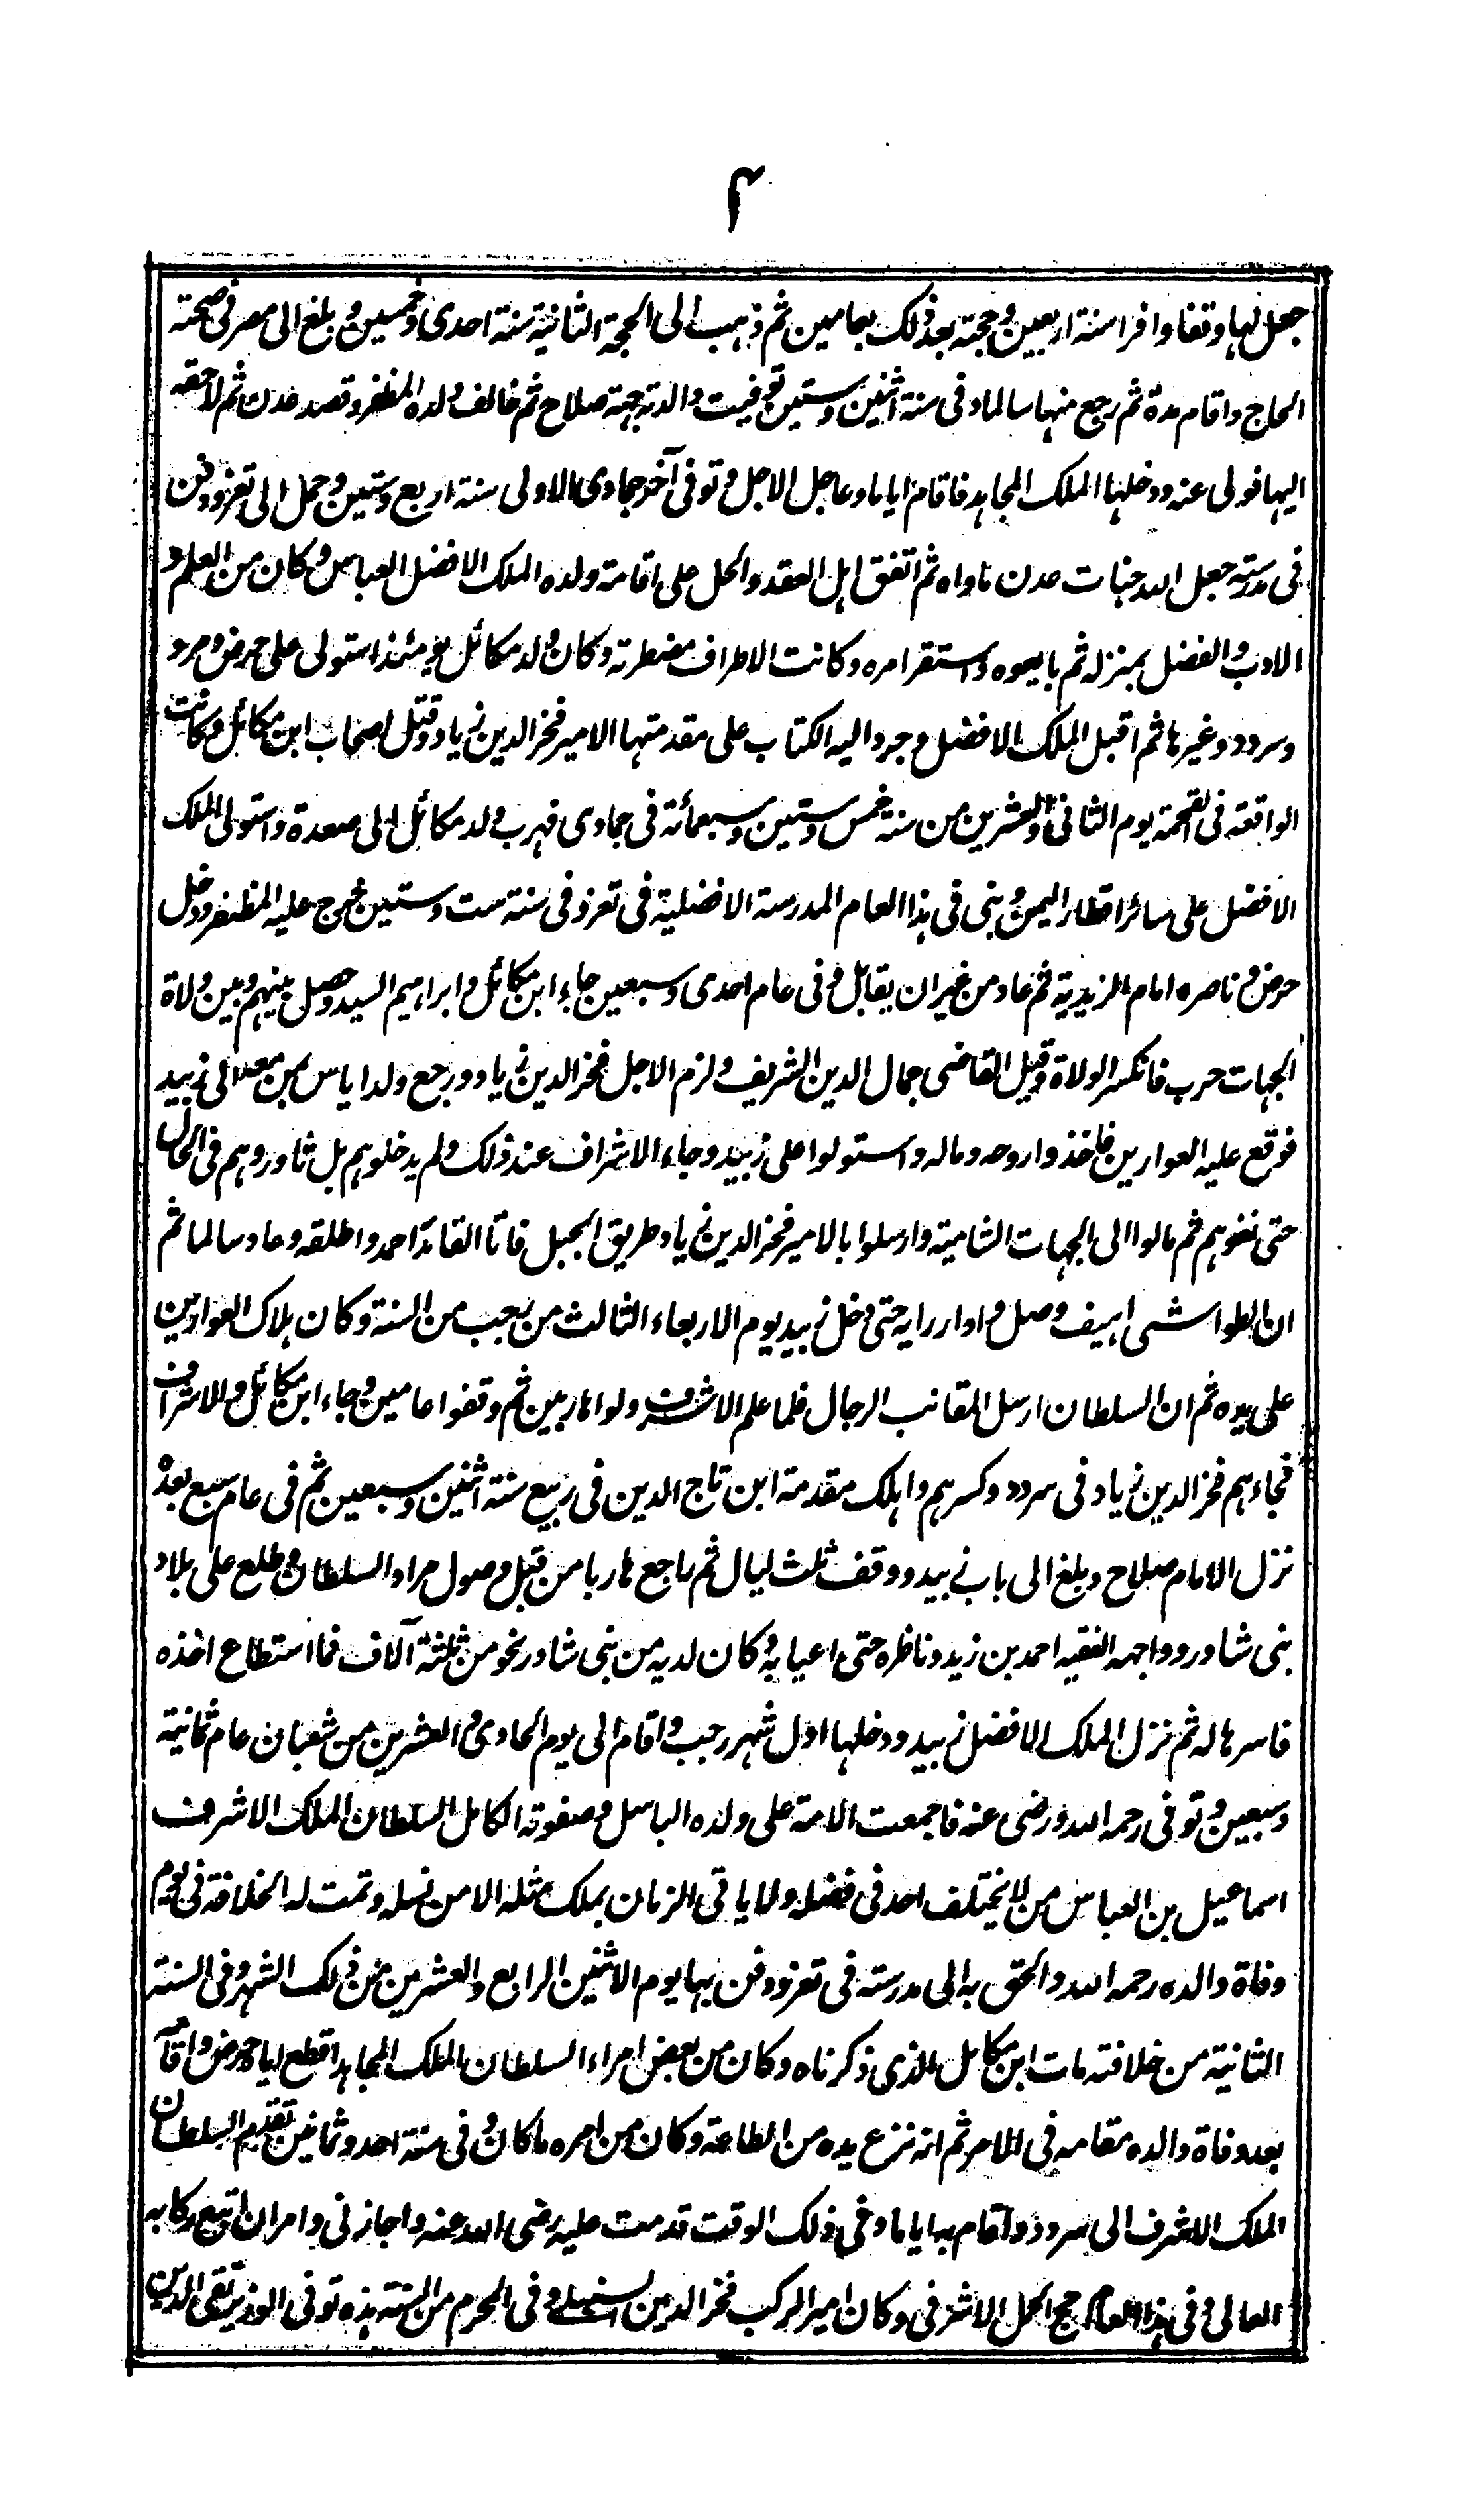 ٢
جعل لها وقفا وافرا سنة اربعين وحجته بعد ذلك بعامين ثم ذهب الى الحجة الثانية سنة احدى وخمسين وبلغ الى مصر فى صحته
الحاج واقام مدة ثم رجع منها سالما وفى سنة اثنين وستين توفيت والدته جهة صلاح ثم خالف ولده المظفر وقصد عدن ثم لاحقه
اليها فولى عنه ودخلها الملك المجاهد فاقام اياما وعاجل الاجل وتوفى آخر جمادى الاولى سنة اربع وستين وحمل الى تعز ودفن
فى مدرسته جعل الله جنات عدن ماواه ثم اتفق اهل العقد والحل على اقامة ولده الملك الافضل العباس وكان من العلم و
الادب والفضل بمنزله ثم بايعوه واستقر امره وكانت الاطراف مضطربة وكان ولد مكائل يومئذ استولى على حرض ومرو
وسردد وغيرها ثم اقبل الملك الافضل وجرد اليه الكتاب على مقدمتها الامير فخر الدين زياد وقتل اصحاب ابن مكائل وكانت
الواقعة فى القحمة يوم الثانى والعشرين من سنة خمس وستين وسبعمائة فى جمادى فهرب ولد مكائل الى صعدة واستولى الملك
الافضل على سائر اقطار اليمن وبنى فى هذا العام المدرسة الافضلية فى تعز وفى سنة ست وستين خرج عليه المظفر ودخل
حرض وناصره امام الزيدية ثم عاد من غير ان يقابل وفى عام احدى وسبعين جاء ابن مكائل وابراهيم السيد وحصل بينهم وبين ولاة
الجهات حرب فانكسر الولاة وقتل القاضى جمال الدين الشريف ولزم الاجل فخر الدين زياد ورجع ولد اياس بمن معه الى زبيد
فوقع عليه العوارين فاخذوا روحه وماله واستولوا على زبيد وجاء الاشراف عند ذلك ولم يدخلوهم بل ثاوروهم فى الحال
حتى نفوهم ثم مالوا الى الجهات الشامية وارسلوا بالامير فخر الدين زياد طريق الجبل فاتا القائد احمد واطلقه وعاد سالما ثم
ان الطواشى اهيف وصل وادار رايه حتى دخل زبيد يوم الاربعاء الثالث من رجب من السنة وكان هلاك العوارين
على يده ثم ان السلطان ارسل المقانب الرجال فلما علم الاشرف ولوا هاربين ثم وقفوا عامين وجاء ابن مكائل والاشراف
فجاءهم فخر الدين زياد فى سردد وكسرهم واهلك مقدمة ابن تاج الدين فى ربيع سنة اثنين وسبعين ثم فى عام سبع بعده
نزل الامام صلاح وبلغ الى باب زبيد ووقف ثلث ليال ثم راجع هاربا من قبل وصول مراد السلطان وطلع على بلاد
بنى شاور وواجهه الفقيه احمد بن زيد وناظره حتى اعيا به وكان لديه من بنى شاور نحو من ثلثة آلاف فما استطاع اخذه
فاسرها له ثم نزل الملك الافضل زبيد ودخلها اول شهر رجب واقام الى يوم الحادى والعشرين من شعبان عام ثمانية
وسبعين وتوفى رحمه الله ورضى عنه فاجمعت الامة على ولده الباسل وصفوته الكامل السلطان الملك الاشرف
اسماعيل بن العباس من لا يختلف احد فى فضله ولا ياتى الزمان بملك مثله الا من نسله وتمت له الخلافة فى يوم
وفاة والده رحمه الله والحق به الى مدرسته فى تعز ودفن بها يوم الاثنين الرابع والعشرين من ذلك الشهر وفى السنة
الثانية من خلافته مات ابن مكائل الذى ذكرناه وكان من بعض امراء السلطان الملك المجاهد اقطع اياه حرض واقام
بعد وفاة والده مقامه فى الامر ثم انه نزع يده من الطاعة وكان من امره ما كان وفى سنة احد وثمانين تقدم السلطان
الملك الاشرف الى سردد واقام بها اياما وفى ذلك الوقت قدمت عليه رضى الله عنه واجازنى وامر ان اتبع ركابه
العالى وفى هذا العام حج المحمل الاشرفى وكان امير الركب فخر الدين السنبلى وفى المحرم من السنة هذه توفى الوزير تقى الدين